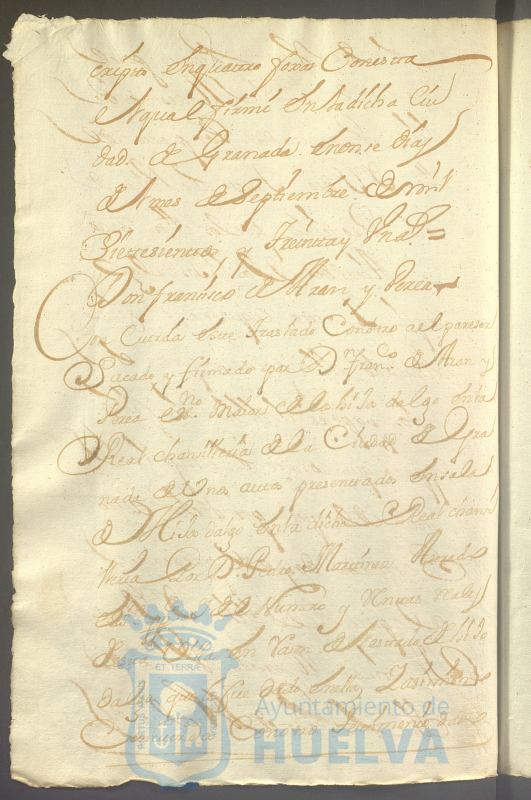 cripto En quatro foxas Con esta
El qual firmé En la dicha Ciu
dad de Granada En onse dias
del mes de Septiembre de mil
Sietesientos y Treinta y Un a.s =
Don Fransisco de Aran y Perea
Concuerda este Traslado Con otro al pareser
Sacado y firmado por D.n Fran.co de Aran y
Perea es.no maior de la hija dalgo En la
Real Chansilleria de la Ciudad de Gra
nada de Unos autos presentados En sala
de Hijos dalgo En la dicha Real chansi
lleria Por D.n Pedro Martines
del Numero y
En Razon de Estado de hijo
dalgo que
ET TERRÆ
Ayuntamiento de
HUELVA